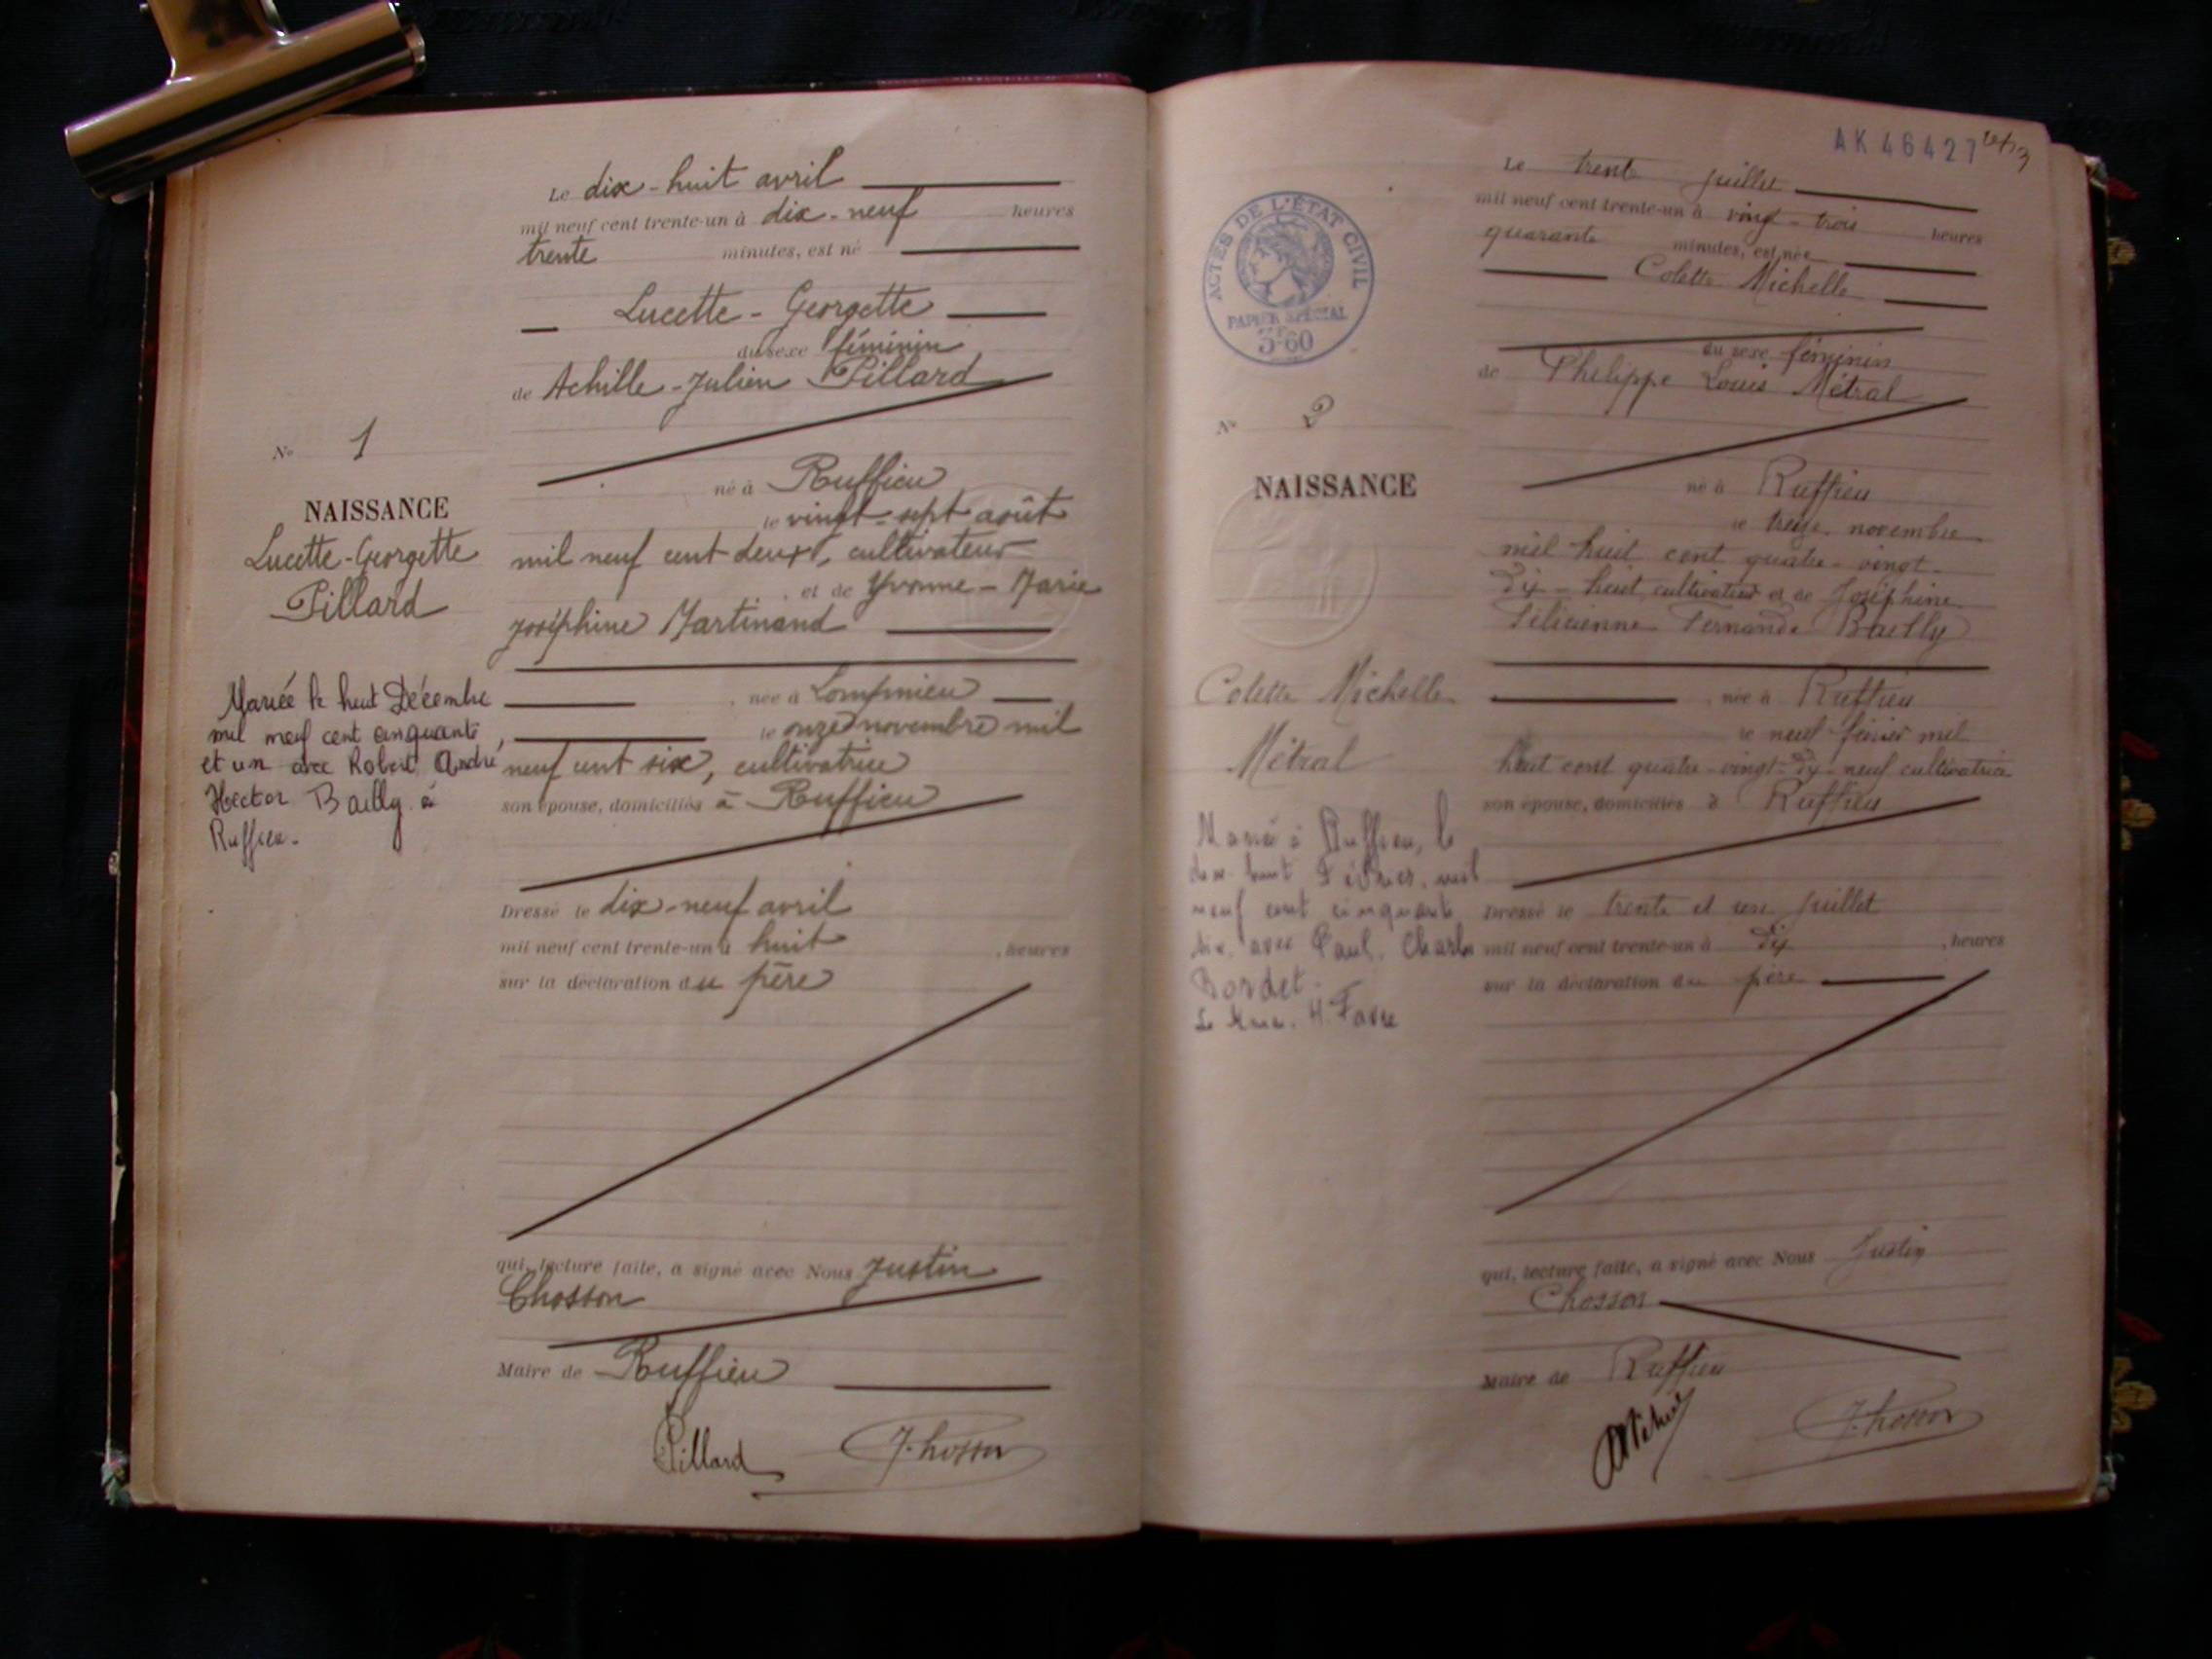 Le dix-huit avril
mil neuf cent trente-un à dix-neuf heures
trente minutes, est né
Lucette-Georgette
du sexe féminin
de Achille-Julien Pillard
né à Ruffieu
le vingt-sept août
mil neuf cent deux, cultivateur
et de Yvonne-Marie
Joséphine Martinand
, née à Lompnieu
le onze novembre mil
neuf cent six, cultivatrice
son épouse, domiciliés à Ruffieu
Dressé le dix-neuf avril
mil neuf cent trente-un à huit , heures
sur la déclaration du père
qui, lecture faite, a signé avec Nous Justin
Chosson
Maire de Ruffieu
Pillard J. Chosson
N° 1
NAISSANCE
Lucette-Georgette
Pillard
Mariée le huit Décembre
mil neuf cent cinquante
et un avec Robert André
Hector Bailly à
Ruffieu.
AK 46427
Le trente juillet
mil neuf cent trente-un à vingt-trois heures
quarante minutes, est née
Colette Michelle
du sexe féminin
de Philippe Louis Métral
né à Ruffieu
le treize novembre
mil huit cent quatre-vingt-
dix-huit cultivateur et de Joséphine
Félicienne Fernande Bailly
, née à Ruffieu
le neuf février mil
huit cent quatre-vingt-dix-neuf cultivatrice
son épouse, domiciliés à Ruffieu
Dressé le trente et un juillet
mil neuf cent trente-un à dix , heures
sur la déclaration du père
qui, lecture faite, a signé avec Nous Justin
Chosson
Maire de Ruffieu
J. Chosson
ACTES DE L'ÉTAT CIVIL
PAPIER SPÉCIAL
3F60
N° 2
NAISSANCE
Colette Michelle
Métral
Marié à Ruffieu, le
dix huit Février mil
neuf cent cinquante
six, avec Paul, Charles
Bordet.
Le Maire. H. Favre